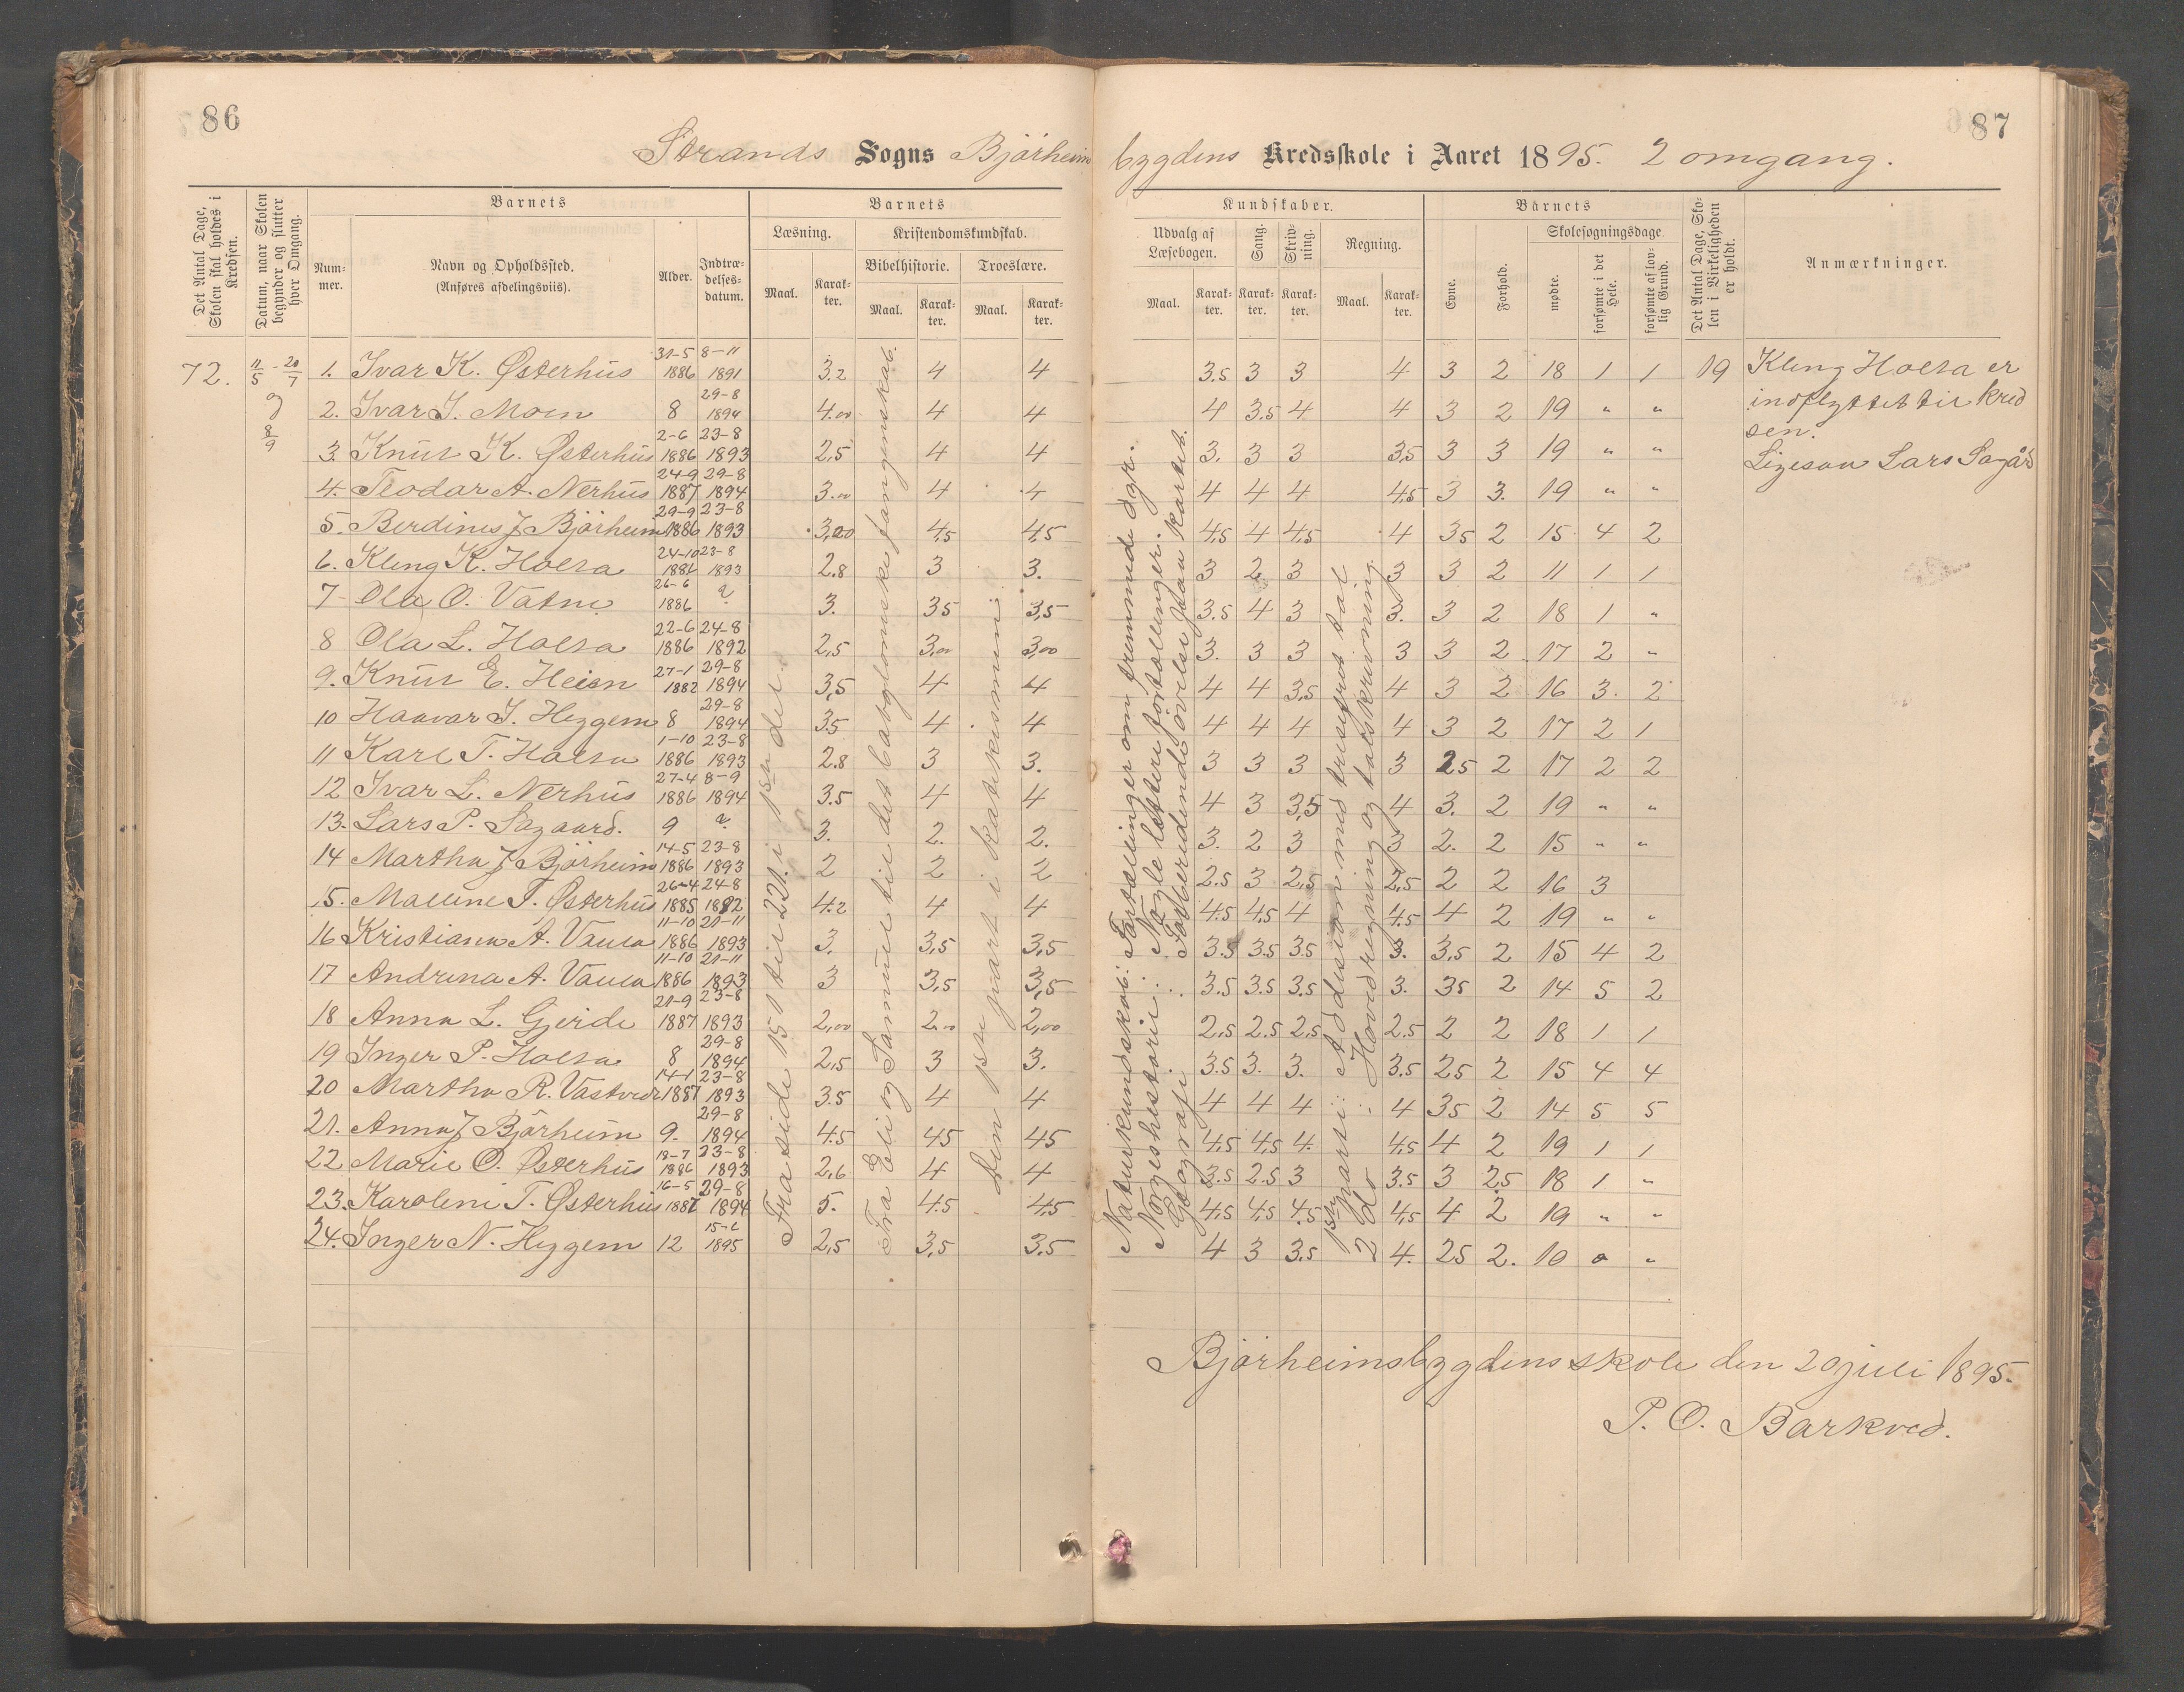 86
87
Strands Sogns Bjørheimbygdens Kredsskole i Aaret 1895. 2 omgang.
Det Antal Dage, Skolen skal holdes i Kredsen.
Datum, naar Skolen begynder og slutter hver Omgang.
Barnets
Num-mer.
Navn og Opholdssted.
(Anføres afdelingsviis).
Alder.
Indtræ-delses-datum.
Barnets
Læsning.
Maal.
Karak-ter.
Kristendomskundskab.
Bibelhistorie.
Maal.
Karak-ter.
Troeslære.
Maal.
Karak-ter.
Kundskaber.
Udvalg af Læsebogen.
Maal.
Karak-ter.
Sang.
Karak-ter.
Skriv-ning.
Karak-ter.
Regning.
Maal.
Karak-ter.
Barnets
Evne.
Forhold.
Skolesøgningsdage.
mødte.
forsømte i det Hele.
forsømte af lov-lig Grund.
Det Antal Dage, Sko-len i Virkeligheden er holdt.
Anmærkninger.
72. 11/5 - 20/7 og 8/9
1. Ivar K. Østerhus 31-5 1886 8-11 1891 3.2 4 4 3.5 3 3 4 3 2 18 1 1 19
2. Ivar J. Moen 8 29-8 1894 4.00 4 4 4 3.5 4 4 3 2 19 " "
3. Knut K. Østerhus 2-6 1886 23-8 1893 2,5 4 4 3. 3 3 3,5 3 3 19 " "
4. Teodor A. Nerhus 24-9 1887 29-8 1894 3.00 4 4 4 4 4 4,5 3 3. 19 " "
5. Berdines J Bjørheim 29-9 1886 23-8 1893 3,20 4,5 4,5 4,5 4 4,5 4 35 2 15 4 2
6. Kleng K. Holta 24-10 1884 23-8 1893 2.8 3 3. 3 2 3 3 3 2 11 1 1
7 Ola O. Vatne 26-6 1886 ? 3. 35 3,5 3.5 4 3 3. 3 2 18 1 "
8 Ola L. Holta 22-6 1886 24-8 1892 2,5 3,00 3,00 3. 3 3 3 3 2 17 2 "
9. Knut E. Heien 27-1 1882 29-8 1894 3,5 4 4 4 4 3,5 4 3 2 16 3. 2
10 Haavar J. Heggem 8 29-8 1894 3.5 4 4 4 4 4 4 3 2 17 2 1
11 Karl T. Holta 1-10 1886 23-8 1893 2.8 3 3. 3 3 3 3 25 2 17 2 2
12 Ivar L. Nerhus 27-4 1886 8-9 1894 3.5 4 4 4 3 3,5 4 3. 2 19 " "
13. Lars P. Sagaard. 9 ? 3. 2. 2. 3. 2 3 3 2. 2 15 " "
14 Martha J Bjørheim 14-5 1886 23-8 1893 2 2 2 2.5 3 2,5 2,5 2 2 16 3
15. Malene T. Østerhus 26-4 1885 24-8 1892 4.2 4 4 4.5 4,5 4 4.5 4 2 19 " "
16 Kristiana A. Vaula 11-10 1886 21-11 1893 3. 3,5 3,5 3.5 3.5 3.5 3. 3,5 2 15 4 2
17 Andrina A. Vaula 11-10 1886 21-11 1893 3 3,5 3,5 3.5 3.5 3.5 3. 35 2 14 5 2
18 Anna L. Gjerde 21-9 1887 23-8 1893 2,00 2.00 2,00 2,5 2.5 2,5 2.5 2 2 18 1 1
19 Inger P. Holta 8 29-8 1894 2,5 3 3. 3.5 3. 3. 3.5 25 2 15 4 4
20 Martha R. Vastveit 14-1 1887 23-8 1893 3.5 4 4 4 4 4 4 35 2 14 5 5
21. Anna J Bjørheim 9. 29-8 1894 4.5 45 45 4,5 4,5 4. 4,5 4 2 19 1 1
22 Marie O. Østerhus 18-7 1886 23-8 1893 2,6 4 4 3.5 2.5 3 3.5 3 2,5 18 1 "
23. Karoline T. Østerhus 16-5 1887 29-8 1894 5. 4.5 4,5 4,5 4,5 4.5 4,5 4 2 19 " "
24. Inger N. Heggem 12 15-6 1895 2,5 3,5 3.5 4 3 3.5 4. 25 2. 10 0 "
Fra side 151 til 221 i 1ste del.
Fra Eli og Samuel til det babylonske fangenskab.
Den 1ste part i katekismen.
Naturkundskab: Fortællinger om fremmede dyr.
Norgeshistorie: Nogle lettere fortællinger.
Geografi: Forberedende øvelser paa kartet.
1ste parti: Addision med tresifret tal
2 do: Hovedregning og talskrivning.
Kleng Holta er
indflyttet til kred
sen.
Ligesaa Lars Sagård
Bjørheimsbygdens skole den 20 juli 1895.
P. O. Barkved.